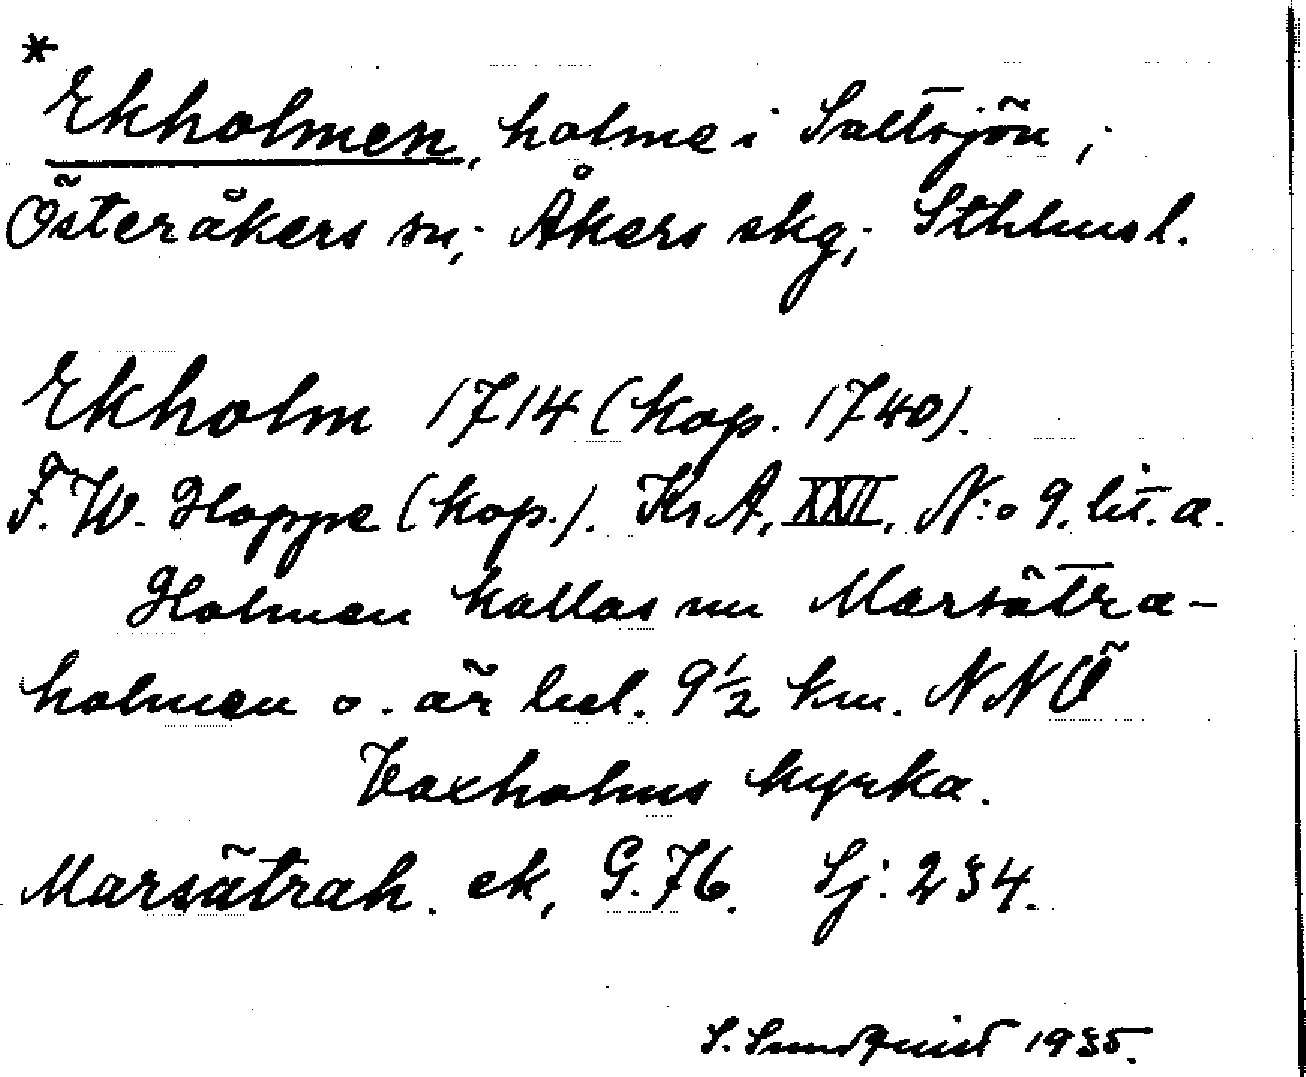 *
Ekholmen, holme i Saltsjön,
Österåkers sn; Åkers skg; Sthlmsl.
Ekholm 1714 (kop. 1740).
F. W. Hoppe (kop.). KrA, XXII, N:o 9. lit. a.
Holmen kallas nu Marsätra-
holmen o. är bel. 9 1/2 km. NNÖ
Vaxholms kyrka.
Marsätrah. ek, G. 76. Sj: 234.
S. Sundquist 1935.